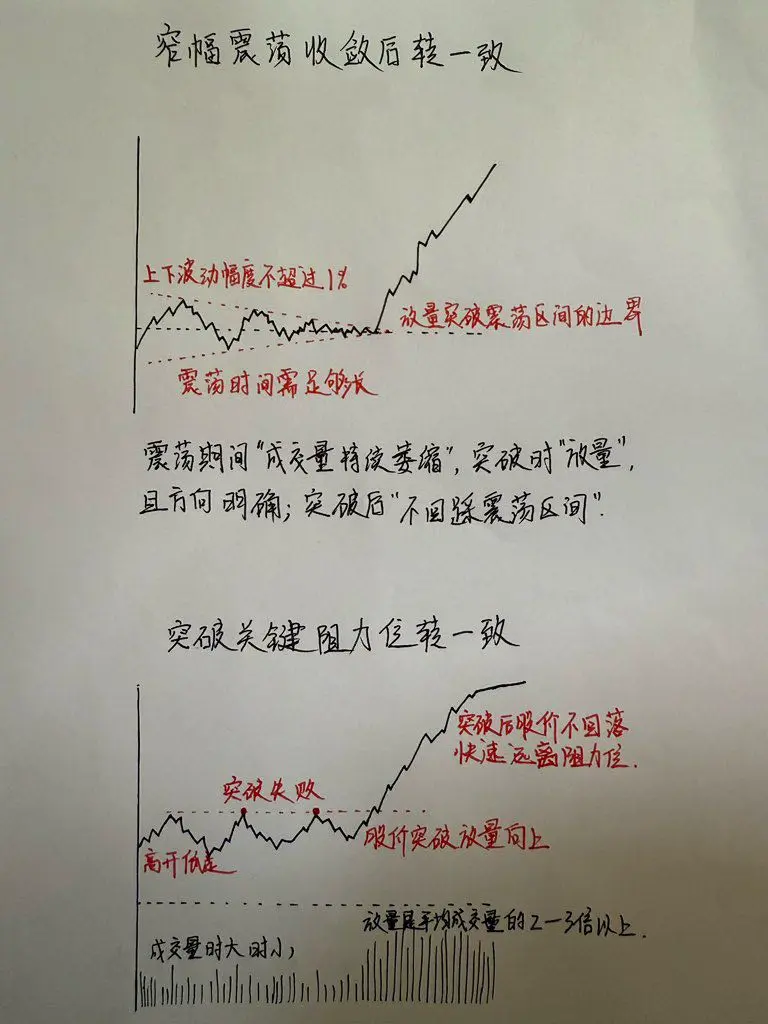 窄幅震荡收敛后转一致
上下波动幅度不超过1%
放量突破震荡区间的边界
震荡时间需足够长
震荡期间“成交量持续萎缩”,突破时“放量”,
且方向明确;突破后“不回踩震荡区间”.
突破关键阻力位转一致
突破后股价不回落
快速远离阻力位.
突破失败
股价突破放量向上
高开低走
放量是平均成交量的2—3倍以上.
成交量时大时小